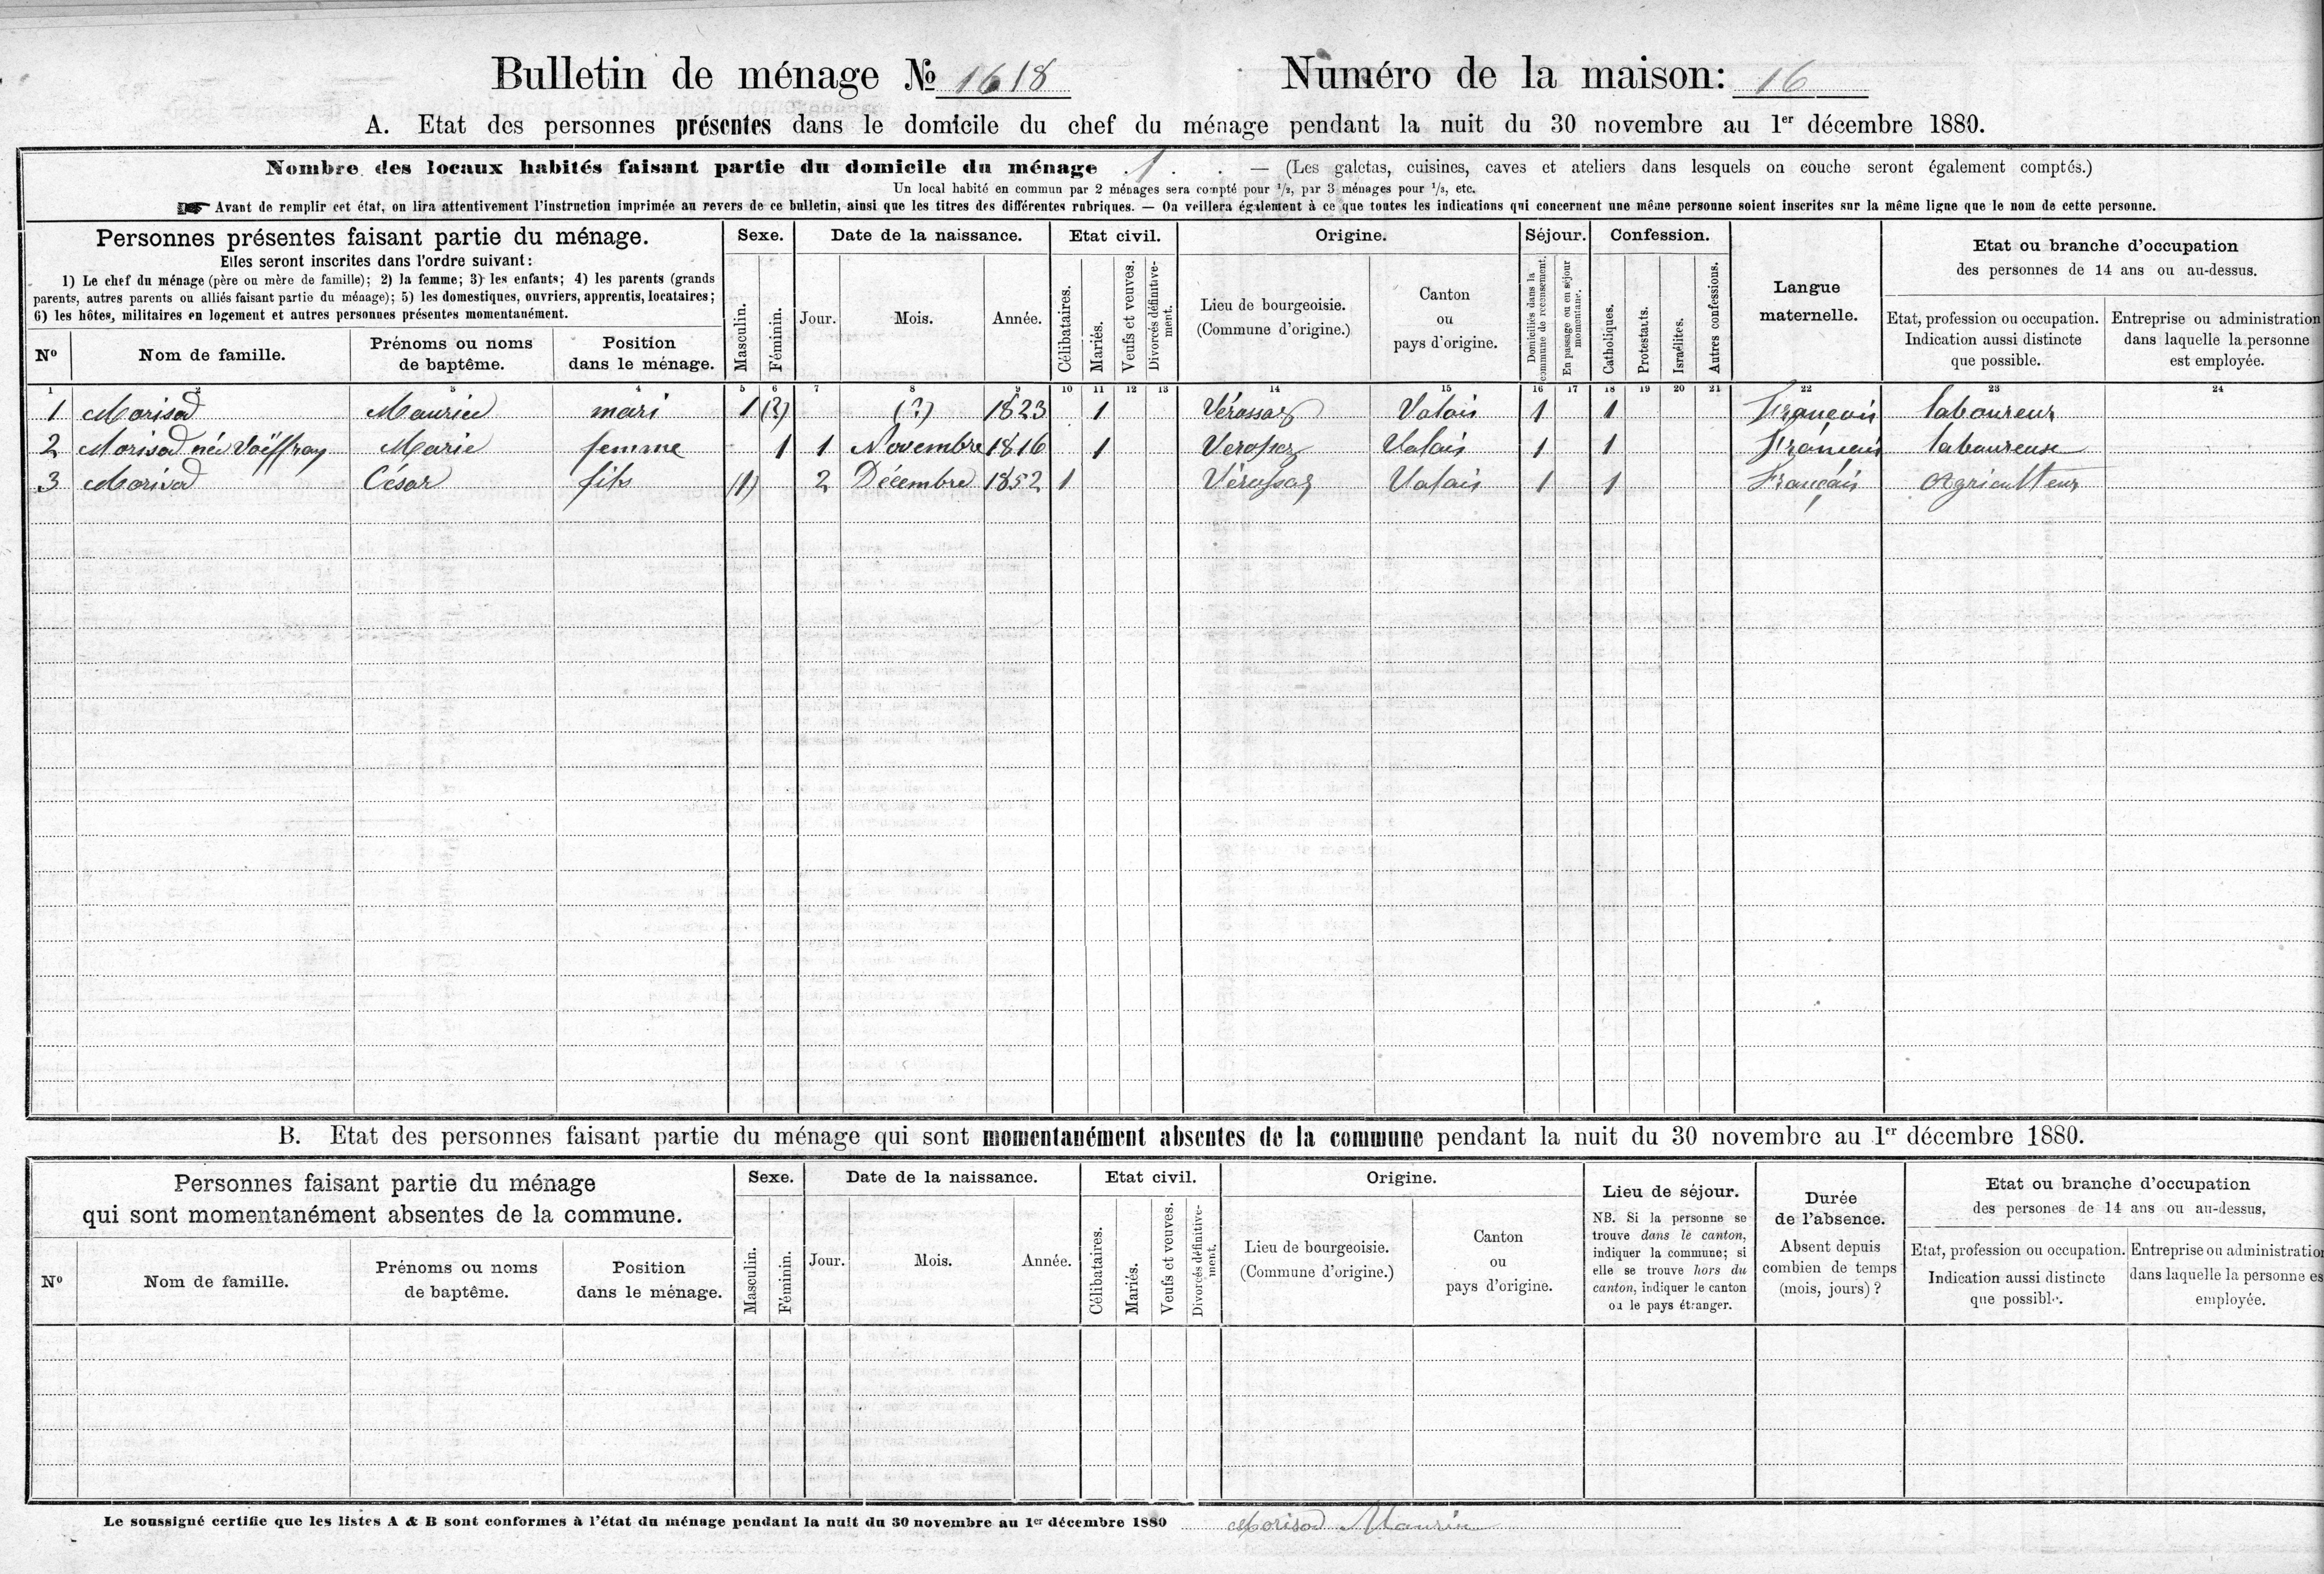 Bulletin de ménage № 1618 Numéro de la maison: 16
A. Etat des personnes présentes dans le domicile du chef du ménage pendant la nuit du 30 novembre au 1er décembre 1880.
Nombre des locaux habités faisant partie du domicile du ménage . 1 . . — (Les galetas, cuisines, caves et ateliers dans lesquels on couche seront également comptés.)
Un local habité en commun par 2 ménages sera compté pour 1/2, par 3 ménages pour 1/3, etc.
☛ Avant de remplir cet état, on lira attentivement l'instruction imprimée au revers de ce bulletin, ainsi que les titres des différentes rubriques. — On veillera également à ce que toutes les indications qui concernent une même personne soient inscrites sur la même ligne que le nom de cette personne.
Personnes présentes faisant partie du ménage.
Elles seront inscrites dans l'ordre suivant:
1) Le chef du ménage (père ou mère de famille); 2) la femme; 3) les enfants; 4) les parents (grands
parents, autres parents ou alliés faisant partie du ménage); 5) les domestiques, ouvriers, apprentis, locataires;
6) les hôtes, militaires en logement et autres personnes présentes momentanément.
Nº
Nom de famille.
Prénoms ou noms
de baptême.
Position
dans le ménage.
Sexe.
Masculin.
Féminin.
Date de la naissance.
Jour.
Mois.
Année.
Etat civil.
Célibataires.
Mariés.
Veufs et veuves.
Divorcés définitive-
ment.
Origine.
Lieu de bourgeoisie.
(Commune d'origine.)
Canton
ou
pays d'origine.
Séjour.
Domiciliés dans la
commune de recensement.
En passage ou en séjour
momentané.
Confession.
Catholiques.
Protestants.
Israélites.
Autres confessions.
Langue
maternelle.
Etat ou branche d'occupation
des personnes de 14 ans ou au-dessus.
Etat, profession ou occupation.
Indication aussi distincte
que possible.
Entreprise ou administration
dans laquelle la personne
est employée.
1 2 3 4 5 6 7 8 9 10 11 12 13 14 15 16 17 18 19 20 21 22 23 24
1 Morisod Maurice mari 1 (?) (?) 1823 1 Vérossaz Valais 1 1 Français laboureur
2 Morisod née Voëffray Marie femme 1 1 Novembre 1816 1 Verossaz Valais 1 1 Français laboureuse
3 Morisod César fils (1) 2 Décembre 1852 1 Vérossaz Valais 1 1 Français Agriculteur
B. Etat des personnes faisant partie du ménage qui sont momentanément absentes de la commune pendant la nuit du 30 novembre au 1er décembre 1880.
Personnes faisant partie du ménage
qui sont momentanément absentes de la commune.
Nº
Nom de famille.
Prénoms ou noms
de baptême.
Position
dans le ménage.
Sexe.
Masculin.
Féminin.
Date de la naissance.
Jour.
Mois.
Année.
Etat civil.
Célibataires.
Mariés.
Veufs et veuves.
Divorcés définitive-
ment.
Origine.
Lieu de bourgeoisie.
(Commune d'origine.)
Canton
ou
pays d'origine.
Lieu de séjour.
NB. Si la personne se
trouve dans le canton,
indiquer la commune; si
elle se trouve hors du
canton, indiquer le canton
ou le pays étranger.
Durée
de l'absence.
Absent depuis
combien de temps
(mois, jours)?
Etat ou branche d'occupation
des persones de 14 ans ou au-dessus,
Etat, profession ou occupation.
Indication aussi distincte
que possible.
Entreprise ou administration
dans laquelle la personne es
employée.
Le soussigné certifie que les listes A & B sont conformes à l'état du ménage pendant la nuit du 30 novembre au 1er décembre 1880 Morisod Maurice